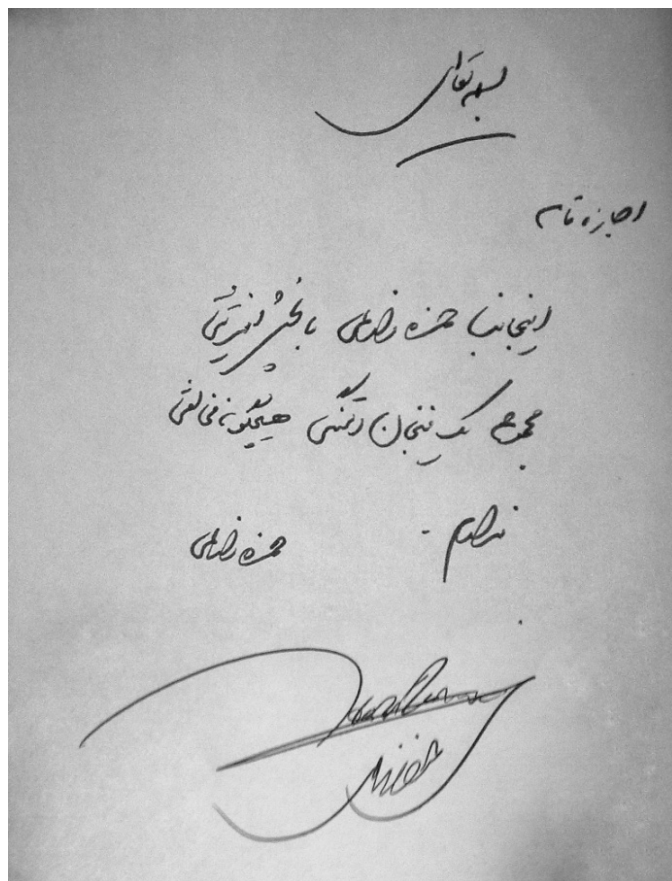 بسمه تعالی
اجازه نامه
اینجانب حمزه زارعی با پخش اینترنتی
مجموعه یک فنجان دلتنگی هیچگونه مخالفتی
ندارم -
حمزه زارعی